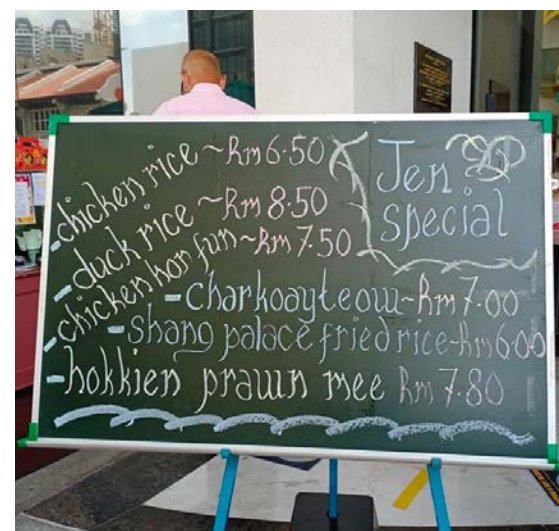 -chicken rice ~ Rm 6.50
-duck rice ~ Rm 8.50
-chicken hor fun ~ Rm 7.50
Jen
special
-charkoayteow ~ Rm 7.00
-shang palace fried rice - Rm 6.00
-hokkien prawn mee Rm 7.80